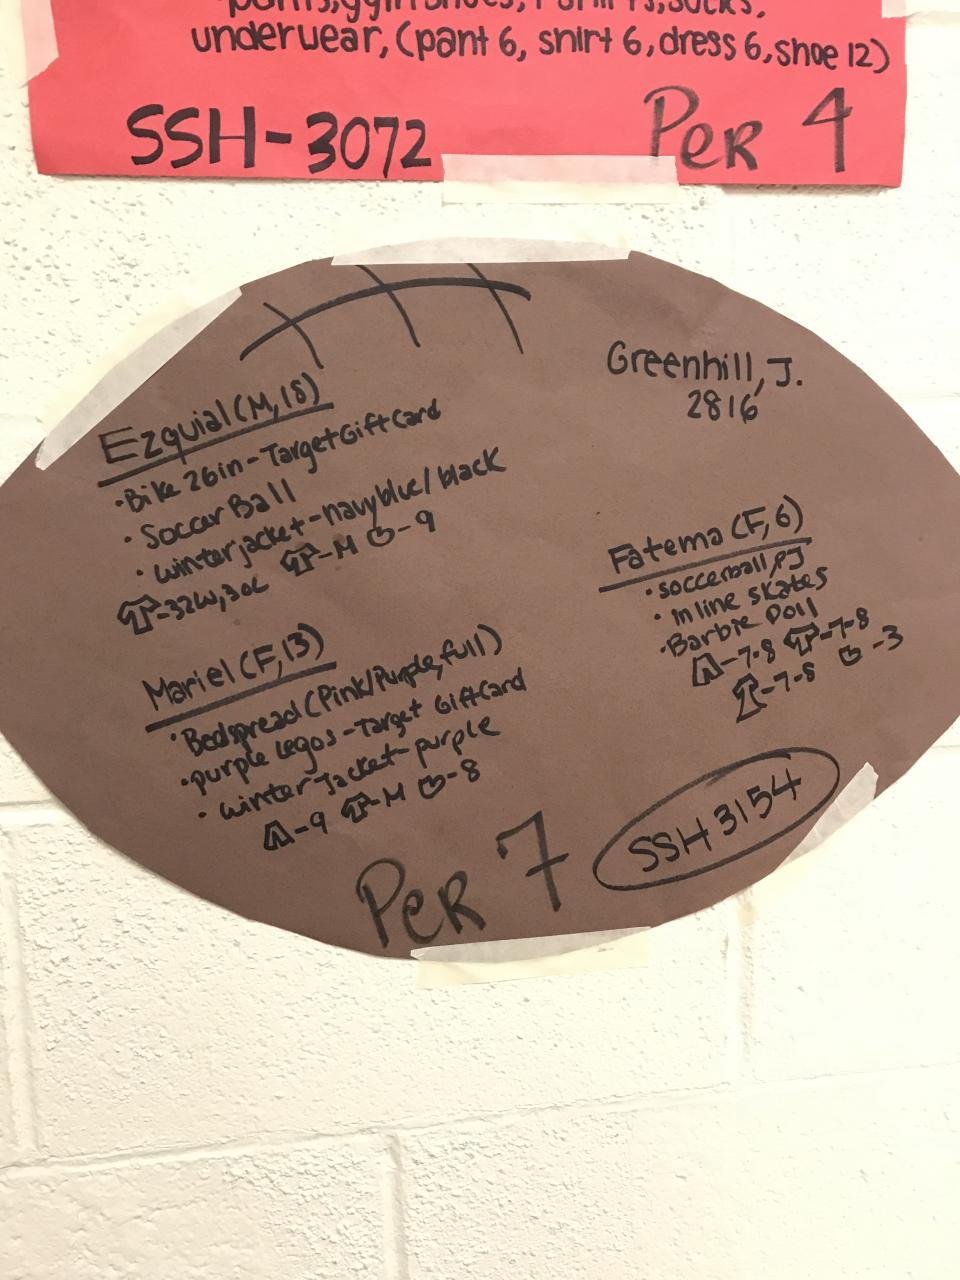 pants, gym shoes, t-shirts, socks,
underwear, (pant 6, shirt 6, dress 6, shoe 12)
SSH-3072
Per 4
Greenhill, J.
2816
Ezquial (M, 18)
• Bike 26in - Target Gift Card
• Soccer Ball
• winter jacket - navy blue / black
-M -9
-32W, 30L
Mariel (F, 13)
• Bedspread (Pink/Purple, full)
• purple legos - Target Gift Card
• winter Jacket - purple
-9 -M -8
Fatema (F, 6)
• soccerball, PJ
• inline skates
• Barbie Doll
-7-8 -7-8
-7-8 -3
Per 7
SSH 3154